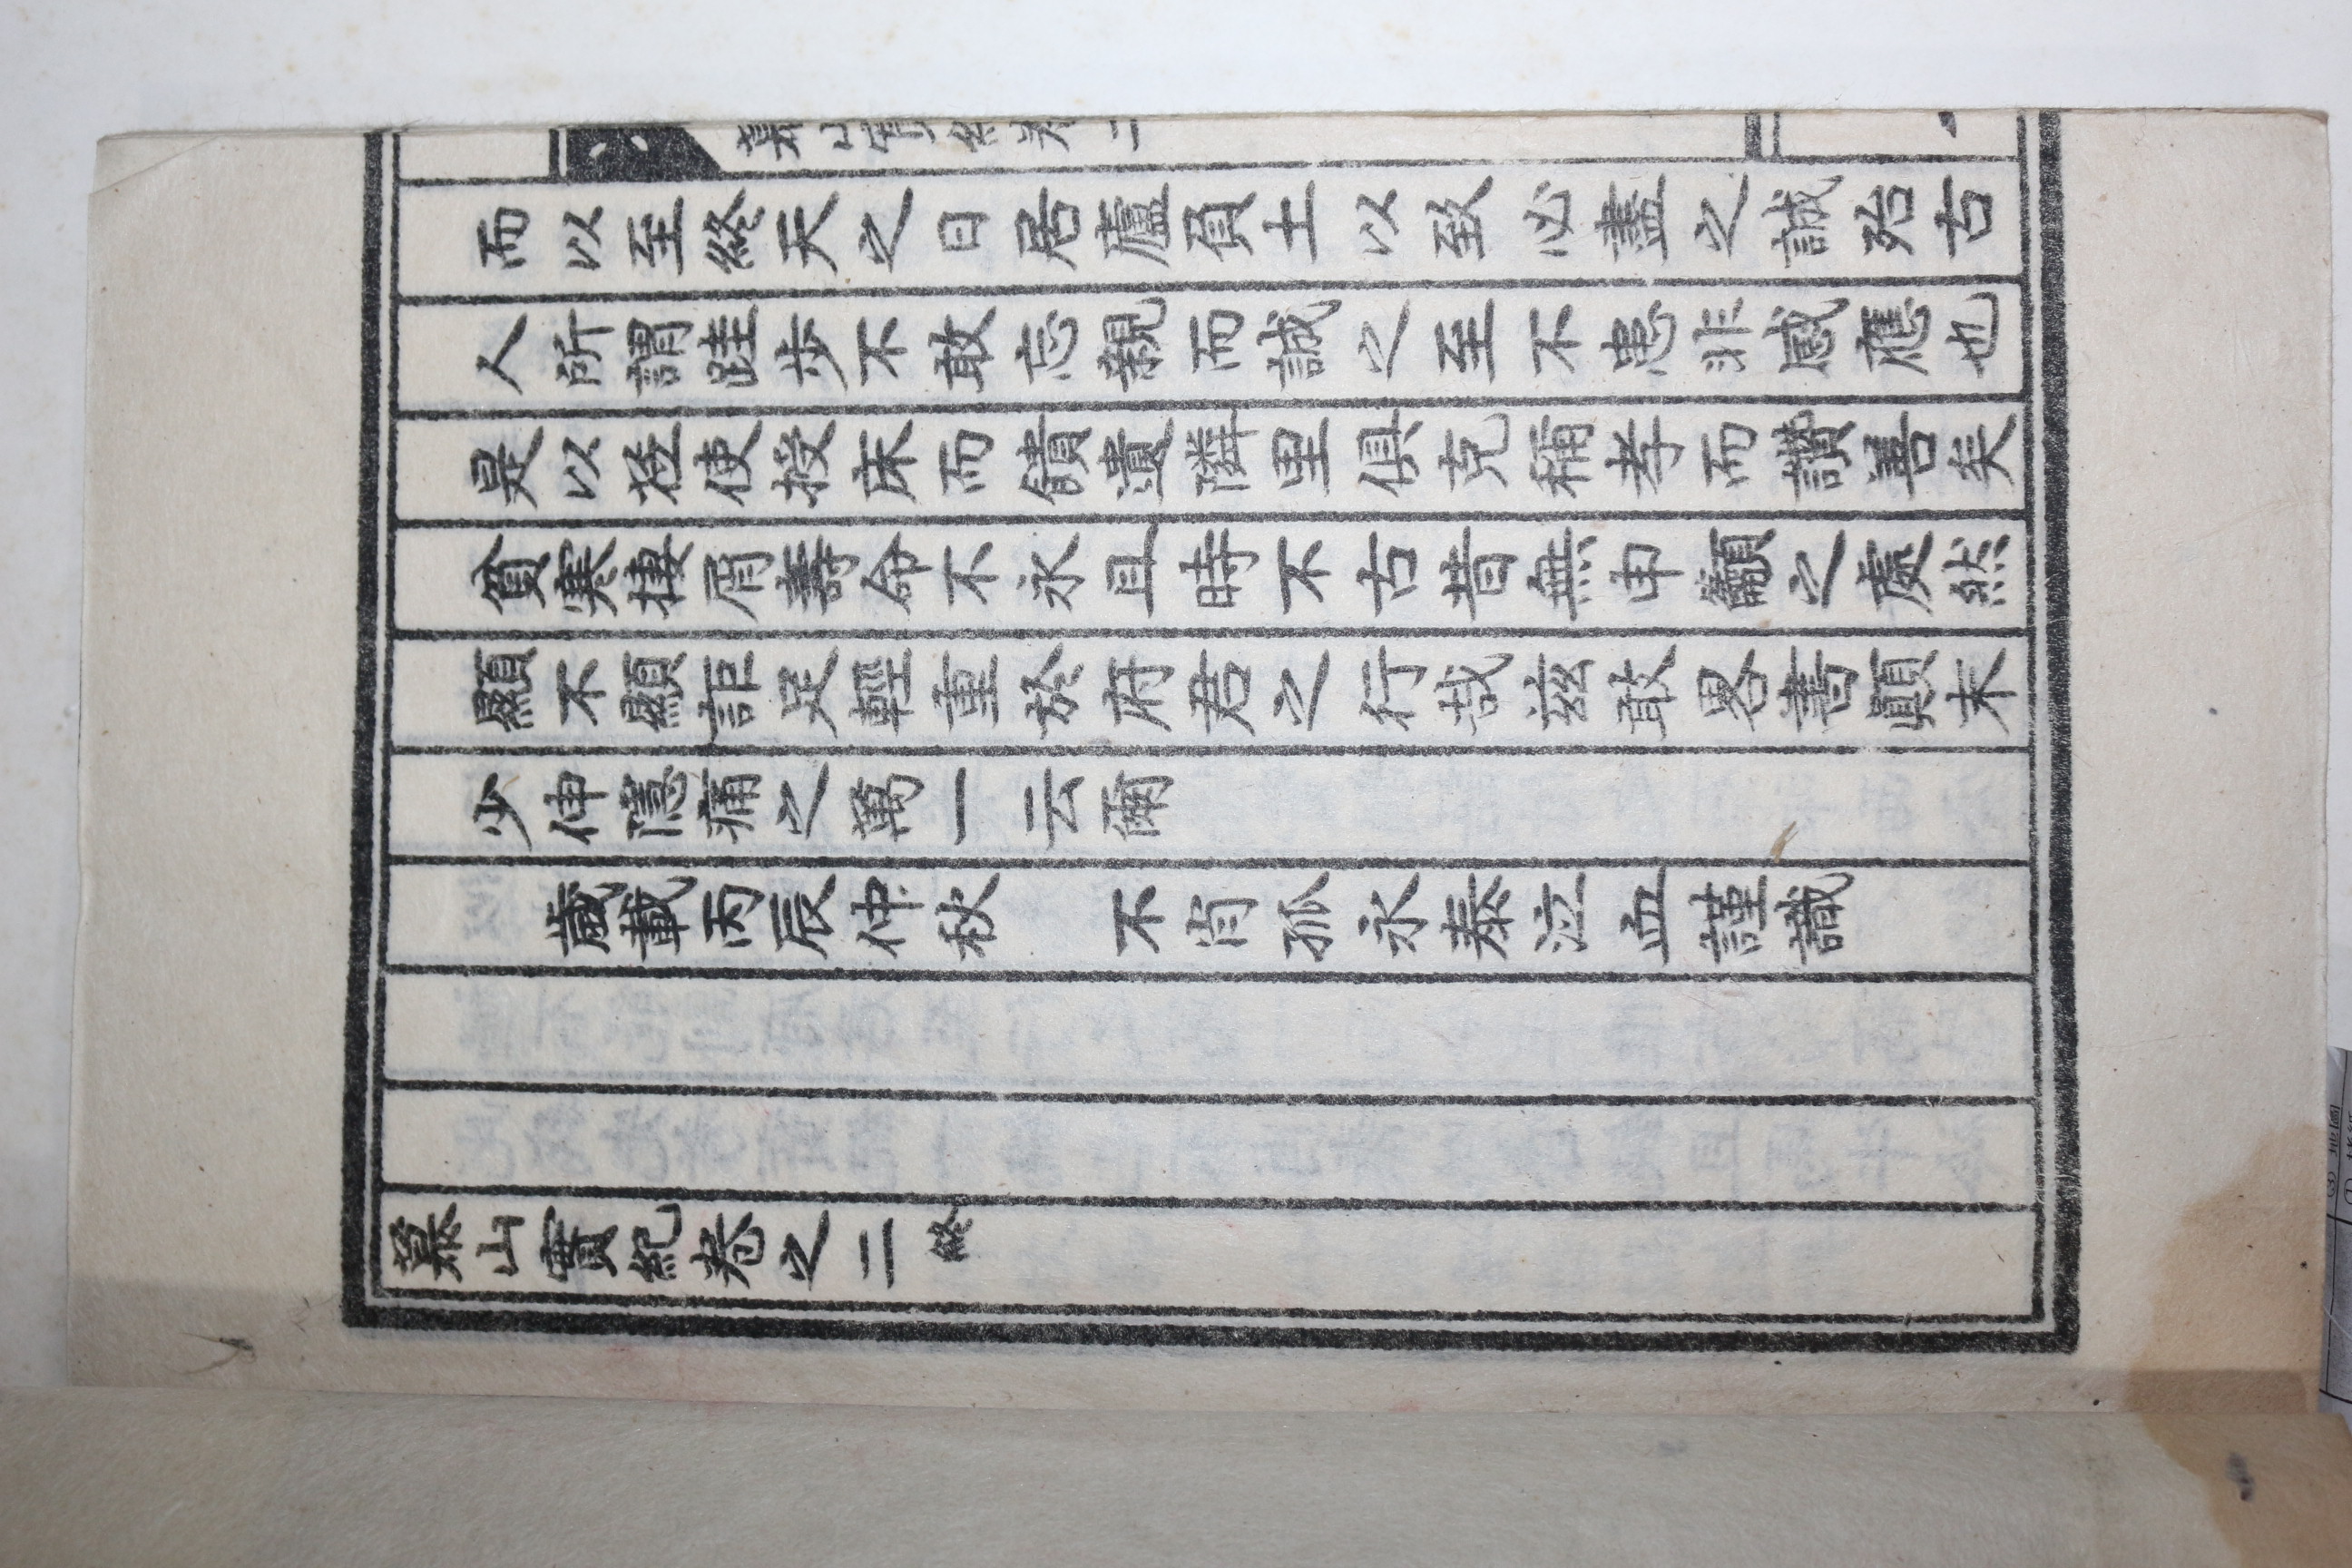 而以至終天之日居廬負土以致必盡之誠殆古
人所謂跬步不敢忘親而誠之至不患非感應也
是以使授床而饋遺隣里俱克稱孝而讚善矣
貧寒棲屑壽命不永且時不古昔無申籲之處然
顯不顯詎足輕重於府君之行哉玆敢畧書顚末
少伸隱痛之萬一云爾
歲載丙辰仲秋　不肖孤永泰泣血謹識
慕山實紀卷之二終